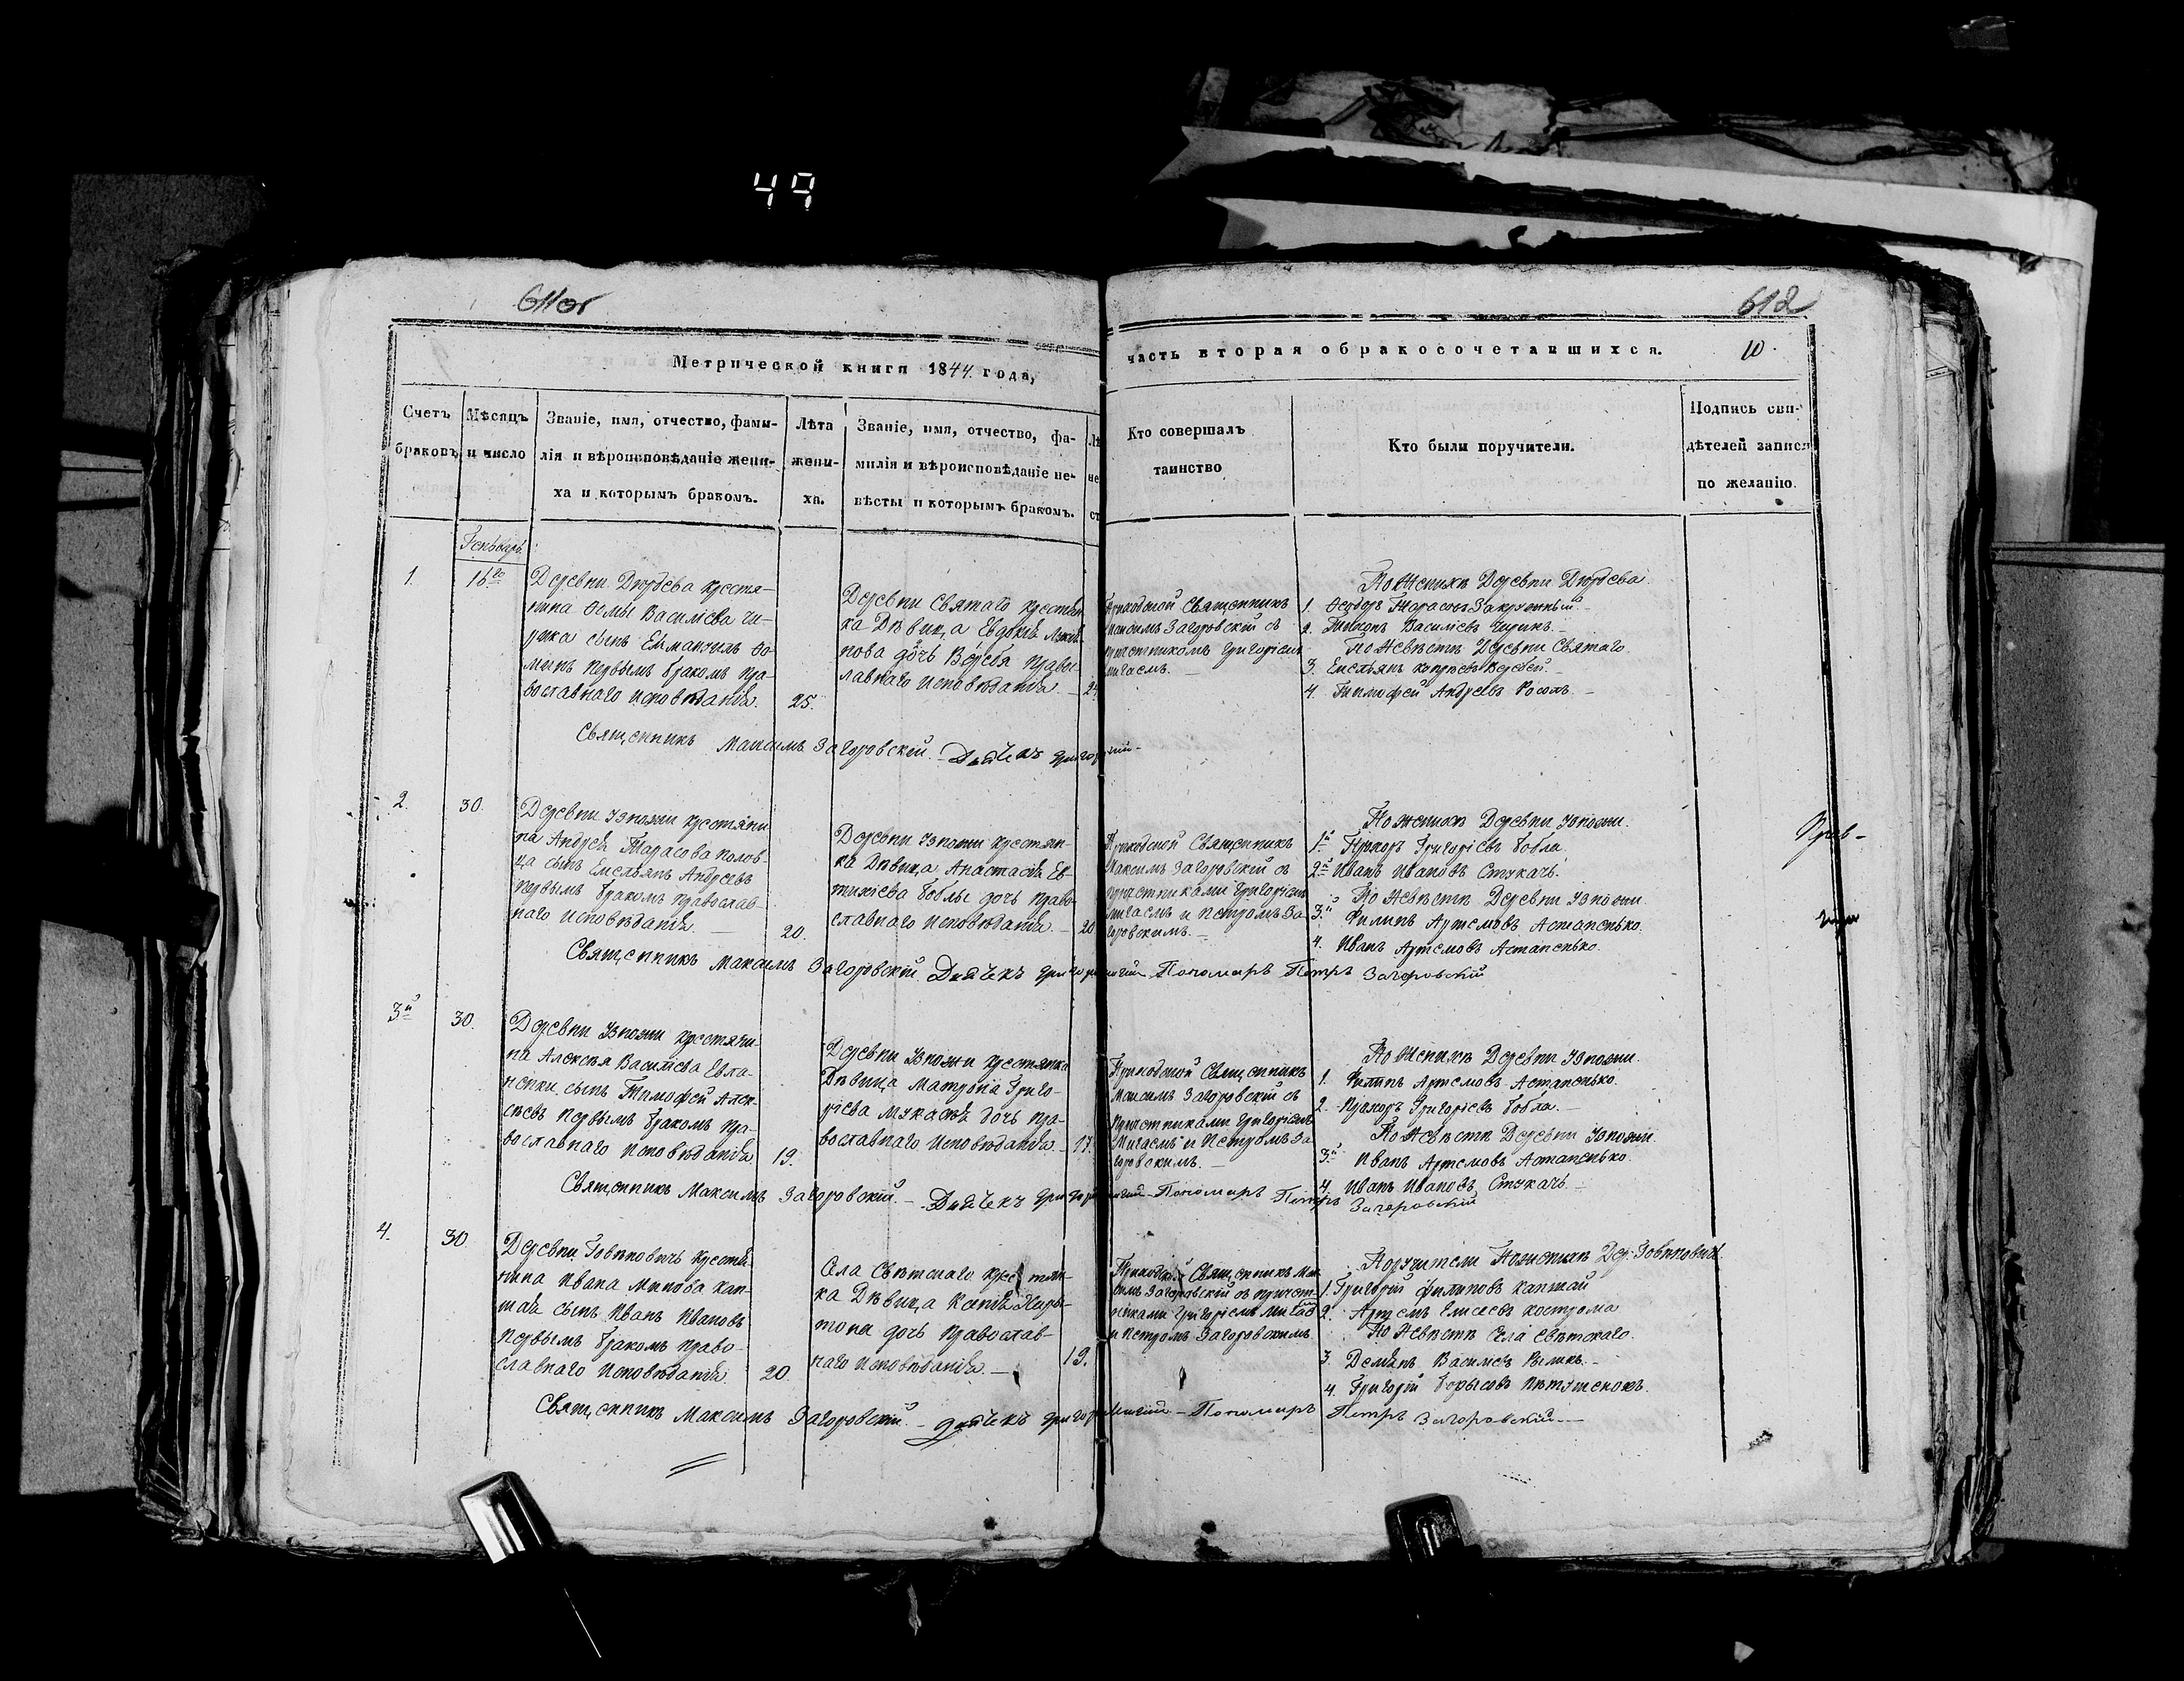 49
611об
612
Метрической книги 1844. года,
часть вторая о бракосочетавшихся.
10.
Счетъ
браковъ
Мѣсяцъ
и число
Званіе, имя, отчество, фами-
лія и вѣроисповѣданіе жени-
ха и которымъ бракомъ.
Лѣта
жени-
ха.
Званіе, имя, отчество, фа-
милія и вѣроисповѣданіе не-
вѣсты и которымъ бракомъ.
Лѣ
не
ст
Кто совершалъ
таинство
Кто были поручители.
Подпись сви-
дѣтелей записи
по желанію.
Генварь
1.
16го
Деревни Дюрдева крестя-
нина Фомы Василіева Чи-
жика сынъ Еммануилъ Фо-
минъ первымъ бракомъ пра-
вославнаго исповѣданія.
25.
Деревни Святаго крестян
ка Дѣвица Евдокія
нова дочь Веребя право
лавнаго исповѣданія. –
24
Приходской Священникъ
Максимъ Загоровскій съ
причетникомъ Григоріемъ
Мигаемъ. –
По Женихѣ Деревни Дюрдева.
1. Феодоръ Тарасовъ Закружный. –
2. Василіевъ Чижикъ. –
По Невѣстѣ Деревни Святаго.
3. Емельянъ Веребей. –
4. Тимофей Андреевъ Росохъ. –
Священникъ Максимъ Загоровскій. – Дьячекъ Григорій
2.
30.
Деревни Узножи крестяни
на Андрея Тарасова Полов-
ца сынъ Емельянъ Андреевъ
первымъ бракомъ православ-
наго исповѣданія. –
20.
Деревни Узножи крестян-
ка Дѣвица Анастасія Ев-
тихіева Боблы дочь право-
славнаго исповѣданія. –
20
Приходской Священникъ
Максимъ Загоровскій съ
причетниками Григоріемъ
Мигаемъ и Петромъ За-
горовскимъ. –
По женихѣ Деревни Узножи.
1й Прохоръ Григоріевъ Бобла.
2й Иванъ Ивановъ Стукачъ.
По Невѣстѣ Деревни Узножи
3й Филипъ Артемовъ Астапенько.
4. Иванъ Артемовъ Астапенько.
Священникъ Максимъ Загоровскій. Дьячекъ Григорій Мигай Пономаръ Петръ Загоровскій
3й
30.
Деревни Узножи крестяни-
на Алексѣя Василіева Евла-
сынъ Тимофей Алек-
сѣевъ первымъ бракомъ пра-
вославнаго исповѣданія
19.
Деревни Узножи крестянка
Дѣвица Матрона Григо-
ріева дочь пра-
вославнаго исповѣданія. –
17.
Приходской Священникъ
Максимъ Загоровскій съ
причетниками Григоріемъ
Мигаемъ и Петромъ За
горовскимъ. –
По Женихѣ Деревни Узножи.
1. Филипъ Артемовъ Астапенько.
2. Прохоръ Григоріевъ Бобла. –
По Невѣстѣ Деревни Узножи.
3й Иванъ Артемовъ Астапенько.
4. Иванъ Ивановъ Стукачъ. –
Священникъ Максимъ Загоровскій. – Дьячекъ Григорій Мигай – Пономаръ Петръ Загоровскій
4.
30
Деревни крестя
нина Ивана Минова Кап-
шая сынъ Иванъ Ивановъ
первымъ бракомъ право-
славнаго исповѣданія.
20.
Села Свѣтскаго крестян-
ка Дѣвица
дочь православ-
наго исповѣданія. –
19.
Приходской Священникъ Мак
симъ Загоровскій съ причет-
никами Григоріемъ
и Петромъ Загоровскимъ
Поручители По женихѣ Дер.
1. Григорій Филиповъ Капшай
2. Артемъ Елисеевъ Кострома
По Невѣстѣ Села Свѣтскаго.
3. Демянъ –
4. Григорій Борысовъ Пѣтушенокъ.
Священникъ Максимъ Загоровскій. – Дьячекъ Григорій Мигай – Пономаръ Петръ Загоровскій. –